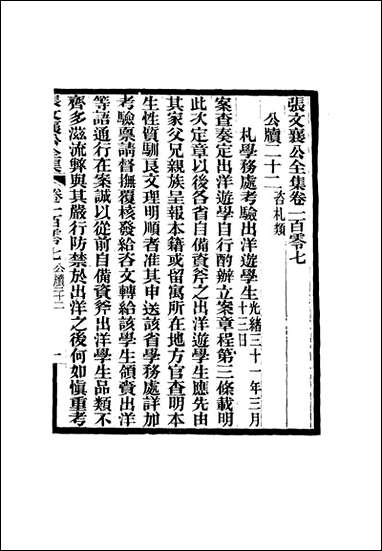 張文襄公全集卷一百零七
公牘二十二 咨札類
札學務處考驗出洋遊學生 光緒三十一年三月十三日
案查奏定出洋遊學自行酌辦立案章程第三條載明
此次定章以後各省自備資斧之出洋遊學生應先由
其家父兄親族呈報本籍或留寓所在地方官查明本
生性質馴良文理明順者准其申送該省學務處詳加
考驗稟請督撫覆核發給咨文轉給該學生領賫出洋
等語通行在案誠以從前自備資斧出洋學生品類不
齊多滋流弊與其嚴行防禁於出洋之後何如慎重考
張文襄公全集 卷一百零七 公牘二十二 一